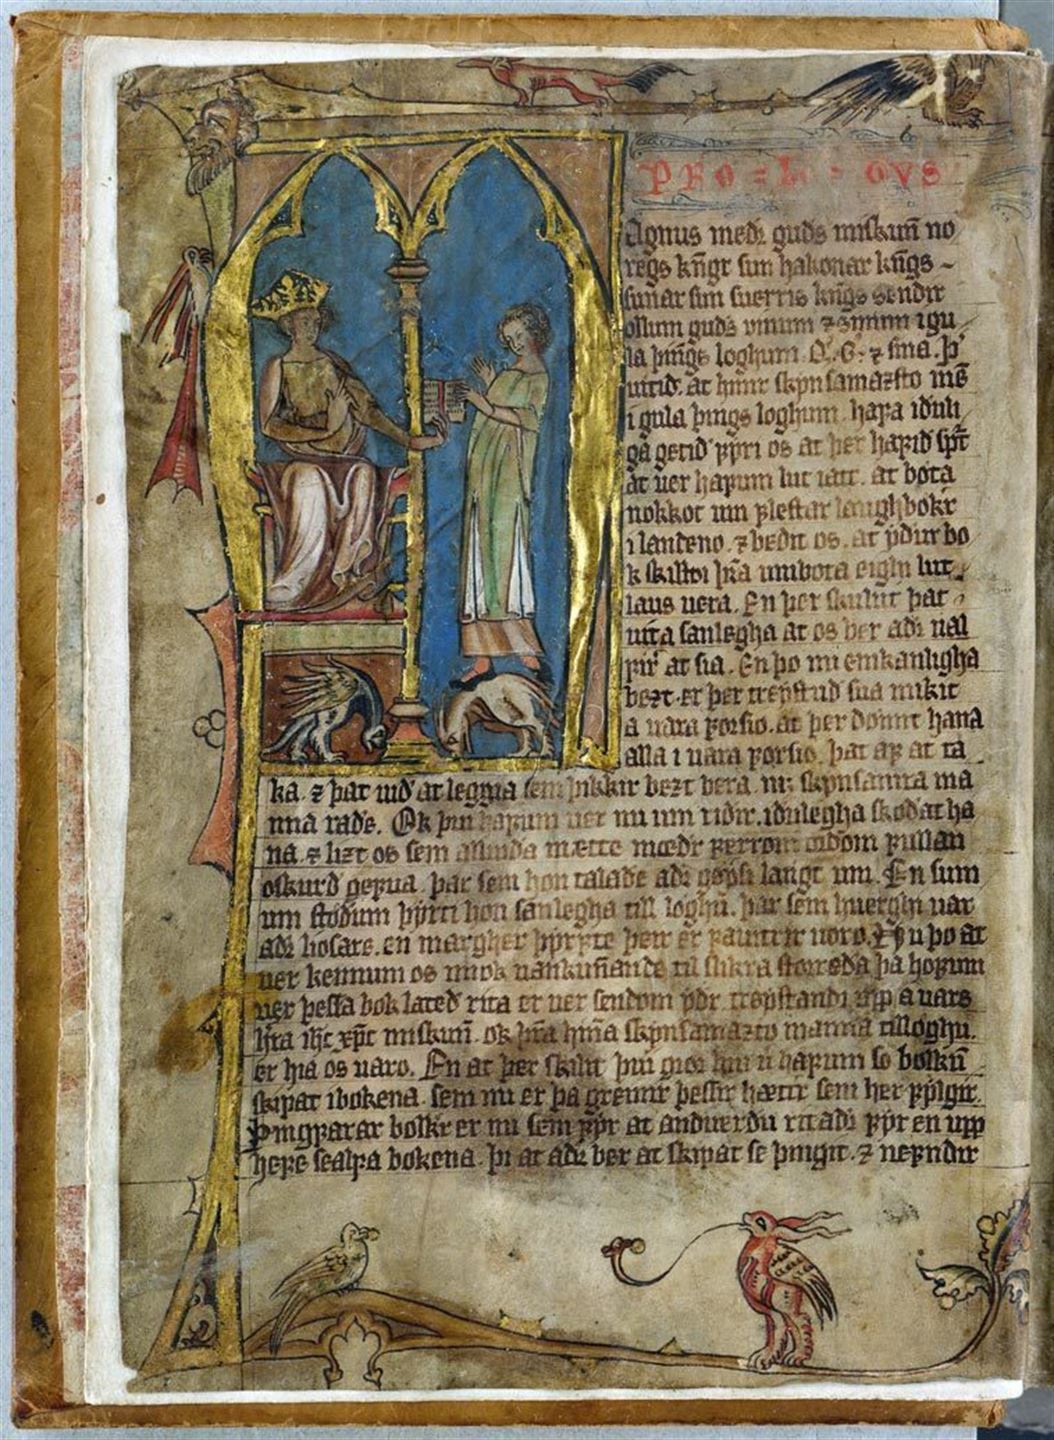 PROLOGVS
Agnus medr guds miskun no
regs kngr sun hakonar kngs
sunar sun suerris kngs sendir
ollum guds uinum ⁊ sinum i gu
la þings loghum Q. G. ⁊ sina. þ
uitid. at hinir skynsamazsto me
i gula þings loghum. hafa iduli
ga getid fyri os at þer hafid spt
at uer hafum lut iatt. at bota
nokkot um flestar laughbokr
i landeno. ⁊ bedit os. at ydur bo
k skilldi hra umbota eighi lut
laus uera. En þer skulut þat
uita sanlegha at os ber adr ual
fir at sia. En þo nu einkanligha
bezt. er þer treystud sua mikit
a uara forsio. at þer domt hana
alla i uara forsio. þat af at ta
ka. ⁊ þat uid at leggia sem þikkir bezt bera. nr skynsamra ma
nna rade. Ok þui hafum uer nu um ridir. idulegha skodat ha
na. ⁊ lizt os sem allinda mætte mœdr
oskurd gefua. þar sem hon talade adr gøysi langt um. En sum
um stodum þyrti hon sanlegha till loghu. þar sem huerghi uar
adr liosare. en margher þyrfte þeir er
uer kennum os miok uankunnande til slikra storreda þa hofum
uer þessa bok lated rita er uer sendom ydr treystandi upp a uars
hra ihc xpc miskun. ok hra hina skynsamazto manna till oghu.
er hia os uaro. En at þer skilit þui hafum so bolkum
skipat i bokena. sem nu er þa greinir þessir hættir sem her fylgir.
þingfarar bolkr er nu sem fyr at anduerdu ritadr fyr en upp
hefe sealfa bokena. þi at adr ber at skipat se þingit. ⁊ nefndir